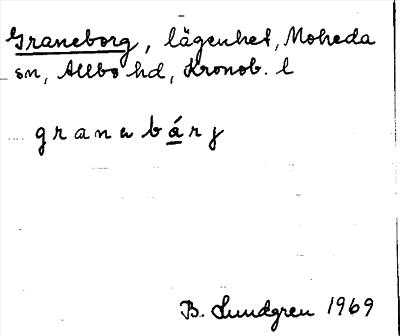 Graneborg, lägenhet, Moheda
sn, Allbo hd, Kronob. l
granabárj
B. Lundgren 1969